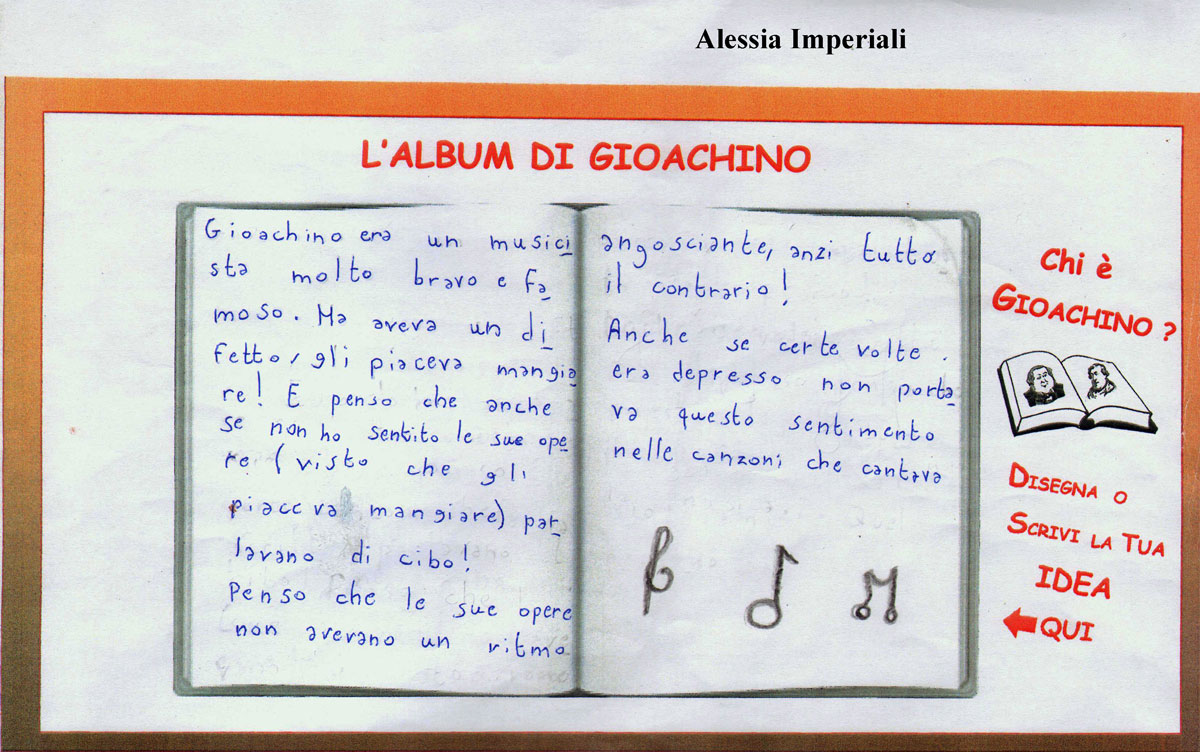 Alessia Imperiali
L'ALBUM DI GIOACHINO
Gioachino era un musici
sta molto bravo e fa
moso. Ma aveva un di
fetto, gli piaceva mangia
re! E penso che anche
se non ho sentito le sue ope
re (visto che gli
piaceva mangiare) par
lavano di cibo!
Penso che le sue opere
non avevano un ritmo
angosciante, anzi tutto
il contrario!
Anche se certe volte
era depresso non porta
va questo sentimento
nelle canzoni che cantava
Chi è
GIOACHINO ?
DISEGNA O
SCRIVI LA TUA
IDEA
QUI